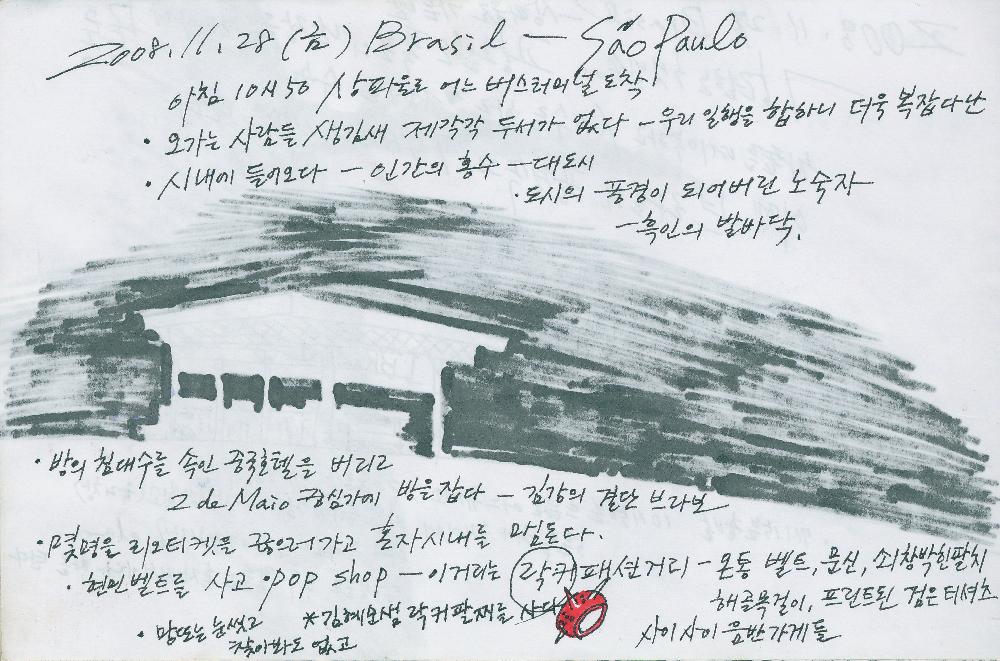 2008.11.28(금) Brasil – São Paulo
아침 10시50 상파울로 어느 버스터미널 도착
· 오가는 사람들 생김새 제각각 두서가 없다 – 우리 일행을 합하니 더욱 복잡다난
· 시내에 들어오다 – 인간의 홍수 – 대도시
· 도시의 풍경이 되어버린 노숙자
– 흑인의 발바닥.
· 방의 침대수를 속인 중국호텔을 버리고
2 de Maio 중심가에 방을 잡다 – 김강의 결단 브라보
· 몇명을 리오티켓을 끊으러가고 혼자시내를 맘돈다.
· 현민벨트를 사고 · pop shop – 이거리는 락커패션거리 – 온통 벨트, 문신, 쇠창박힌팔찌
해골목걸이, 프린트된 검은티셔츠
사이사이 음반가게들
*김혜모샘 락커팔찌를 사다
· 망또는 눈씻고
찾아봐도 없고